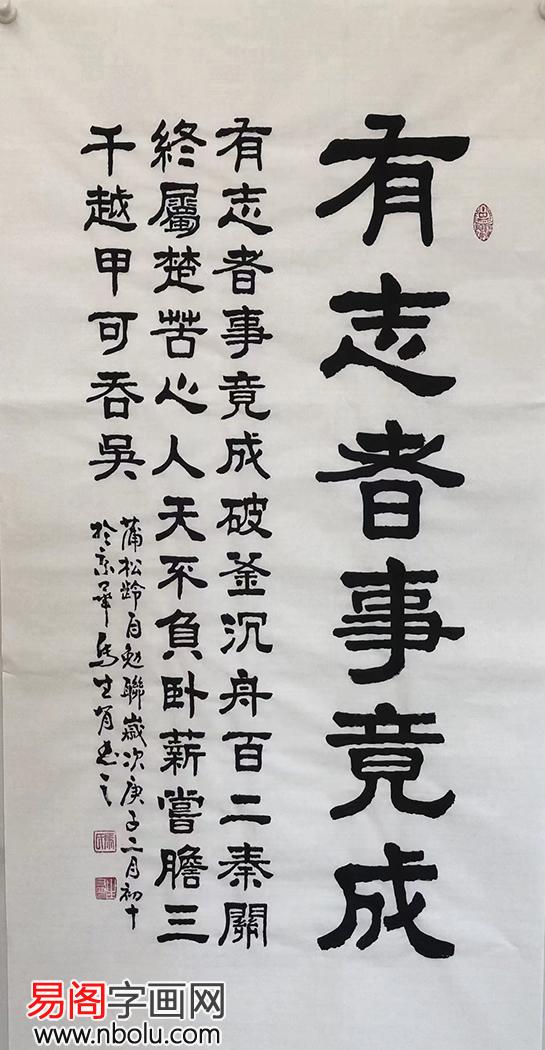 有志者事竟成
有志者事竟成破釜沉舟百二秦關
終屬楚苦心人天不負卧薪嘗膽三
千越甲可吞吴
蒲松龄自勉聯歲次庚子二月初十
於京華
易阁字画网
www.nbolu.com